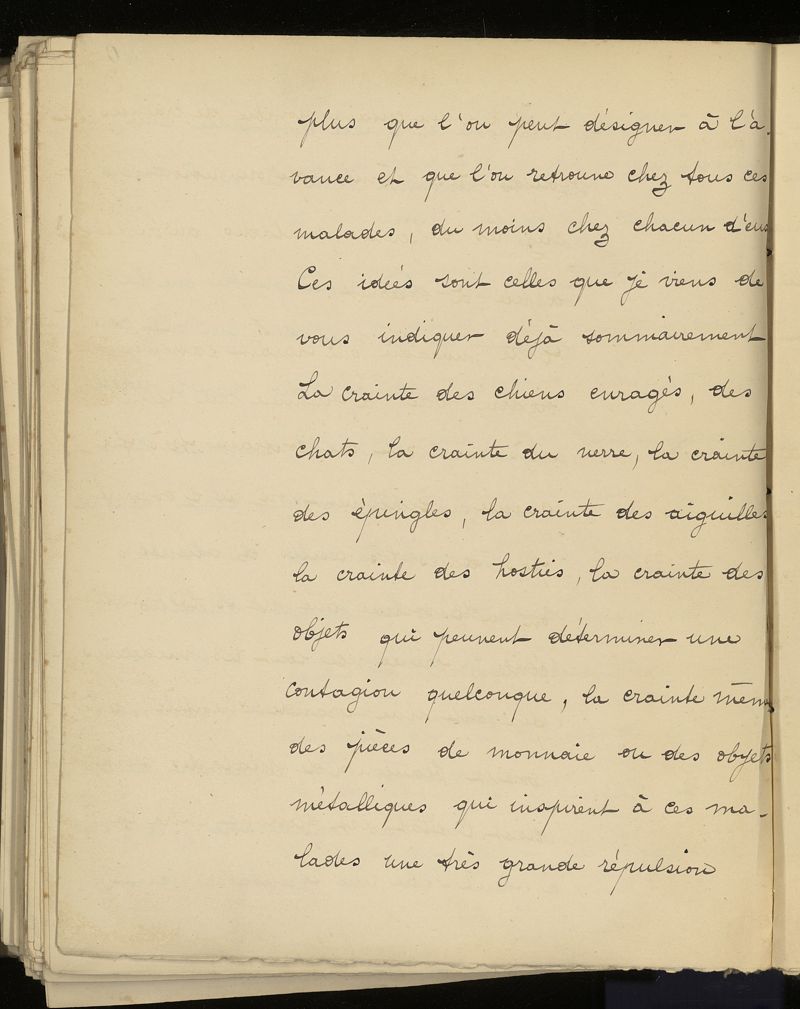 plus que l'on peut désigner à l'a-
vance et que l'on retrouve chez tous ces
malades, du moins chez chacun d'eux
Ces idées sont celles que je viens de
vous indiquer déjà sommairement
La crainte des chiens enragés, des
chats, la crainte du verre, la crainte
des épingles, la crainte des aiguilles
la crainte des hosties, la crainte des
objets qui peuvent déterminer une
contagion quelconque, la crainte même
des pièces de monnaie ou des objets
métalliques qui inspirent à ces ma-
lades une très grande répulsion